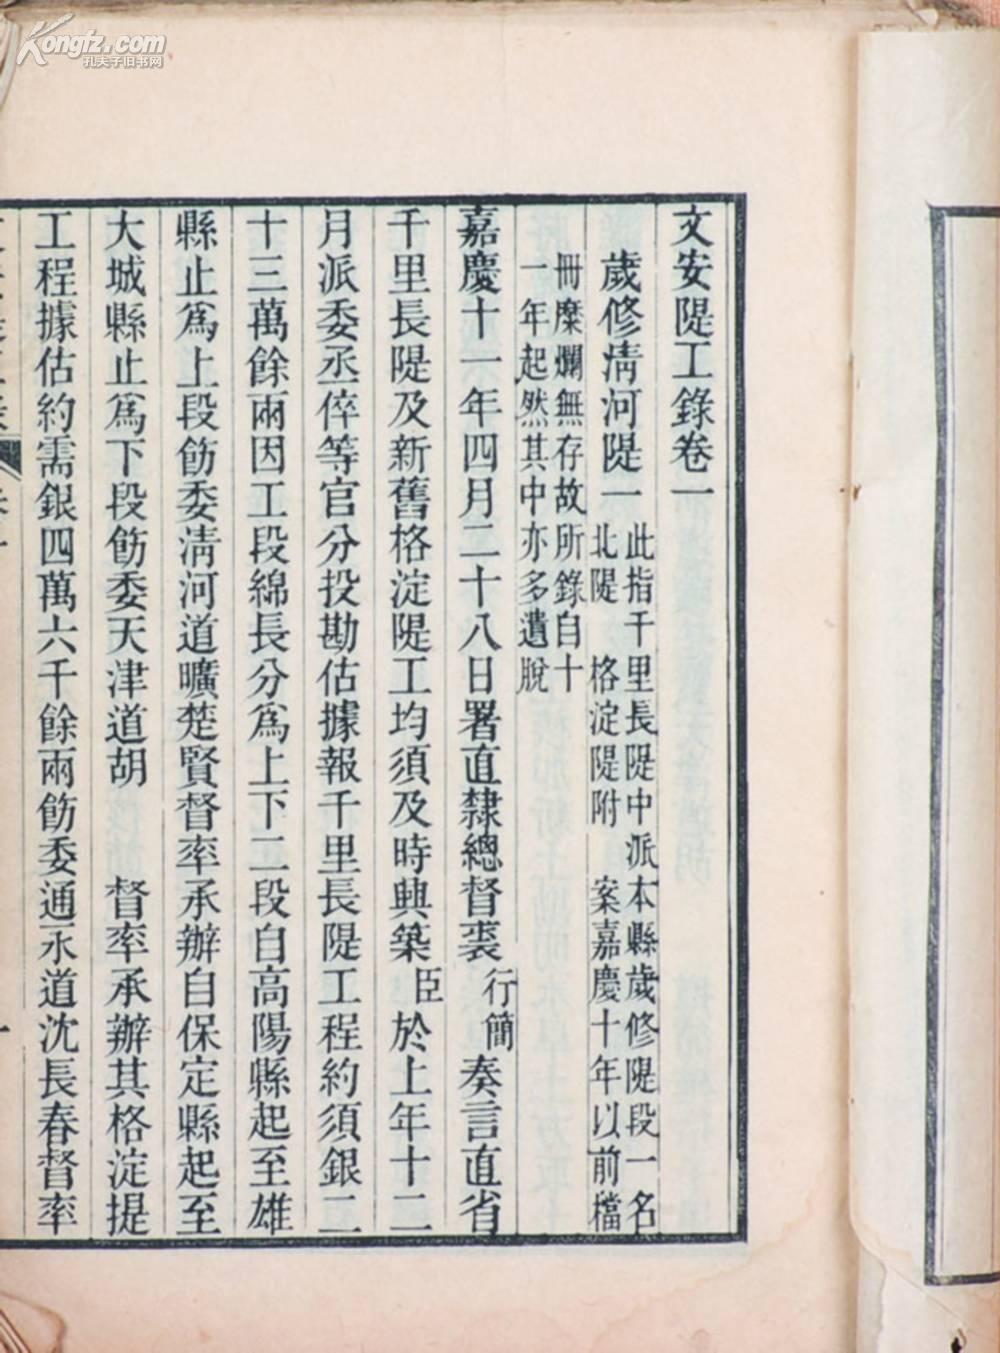 Kongfz.com
孔夫子旧书网
文安隄工錄卷一
歲修清河隄一
此指千里長隄中派本縣歲修隄段一名
北隄 格淀隄附 案嘉慶十年以前檔
冊糜爛無存故所錄自十
一年起然其中亦多遺脫
嘉慶十一年四月二十八日署直隸總督裘行簡奏言直省
千里長隄及新舊格淀隄工均須及時興築臣於上年十二
月派委丞倅等官分投勘估據報千里長隄工程約須銀二
十三萬餘兩因工段綿長分爲上下二段自高陽縣起至雄
縣止爲上段飭委清河道曠楚賢督率承辦自保定縣起至
大城縣止爲下段飭委天津道胡 督率承辦其格淀提
工程據估約需銀四萬六千餘兩飭委通永道沈長春督率